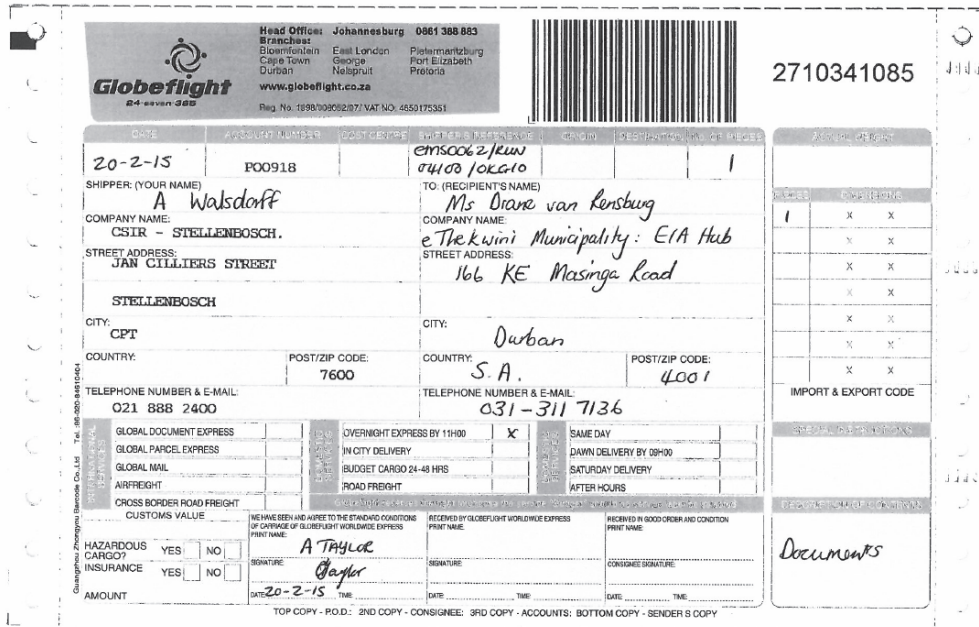 Globeflight
24-seven-365
Head Office: Johannesburg 0861 388 883
Branches:
Bloemfontein East London Pietermaritzburg
Cape Town George Port Elizabeth
Durban Nelspruit Pretoria
www.globeflight.co.za
2710341085
DATE ACCOUNT NUMBER COST CENTRE SHIPPER'S REFERENCE ORIGIN DESTINATION NO. OF PIECES
20-2-15 P00918 1
SHIPPER: (YOUR NAME)
A Walsdorff
COMPANY NAME:
CSIR - STELLENBOSCH.
STREET ADDRESS:
JAN CILLIERS STREET
STELLENBOSCH
CITY:
CPT
COUNTRY: POST/ZIP CODE:
7600
TELEPHONE NUMBER & E-MAIL:
021 888 2400
TO: (RECIPIENT'S NAME)
Ms van Rensburg
COMPANY NAME:
eThekwini Municipality: EIA Hub
STREET ADDRESS:
166 KE Masinga Road
CITY:
Durban
COUNTRY: POST/ZIP CODE:
S.A. 4001
TELEPHONE NUMBER & E-MAIL:
031-311 7136
1 X X
X X
X X
X X
X X
X X
X X
IMPORT & EXPORT CODE
GLOBAL DOCUMENT EXPRESS
GLOBAL PARCEL EXPRESS
GLOBAL MAIL
AIRFREIGHT
CROSS BORDER ROAD FREIGHT
OVERNIGHT EXPRESS BY 11H00 X
IN CITY DELIVERY
BUDGET CARGO 24-48 HRS
ROAD FREIGHT
SAME DAY
DAWN DELIVERY BY 09H00
SATURDAY DELIVERY
AFTER HOURS
CUSTOMS VALUE
HAZARDOUS CARGO? YES NO
INSURANCE YES NO
AMOUNT
WE HAVE SEEN AND AGREE TO THE STANDARD CONDITIONS
OF CARRIAGE OF GLOBEFLIGHT WORLDWIDE EXPRESS
PRINT NAME:
A TAYLOR
SIGNATURE:
DATE: 20-2-15 TIME:
RECEIVED BY GLOBEFLIGHT WORLDWIDE EXPRESS
PRINT NAME:
SIGNATURE:
DATE: TIME:
RECEIVED IN GOOD ORDER AND CONDITION
PRINT NAME:
CONSIGNEE SIGNATURE:
DATE: TIME:
Documents
TOP COPY - P.O.D.: 2ND COPY - CONSIGNEE: 3RD COPY - ACCOUNTS: BOTTOM COPY - SENDER'S COPY